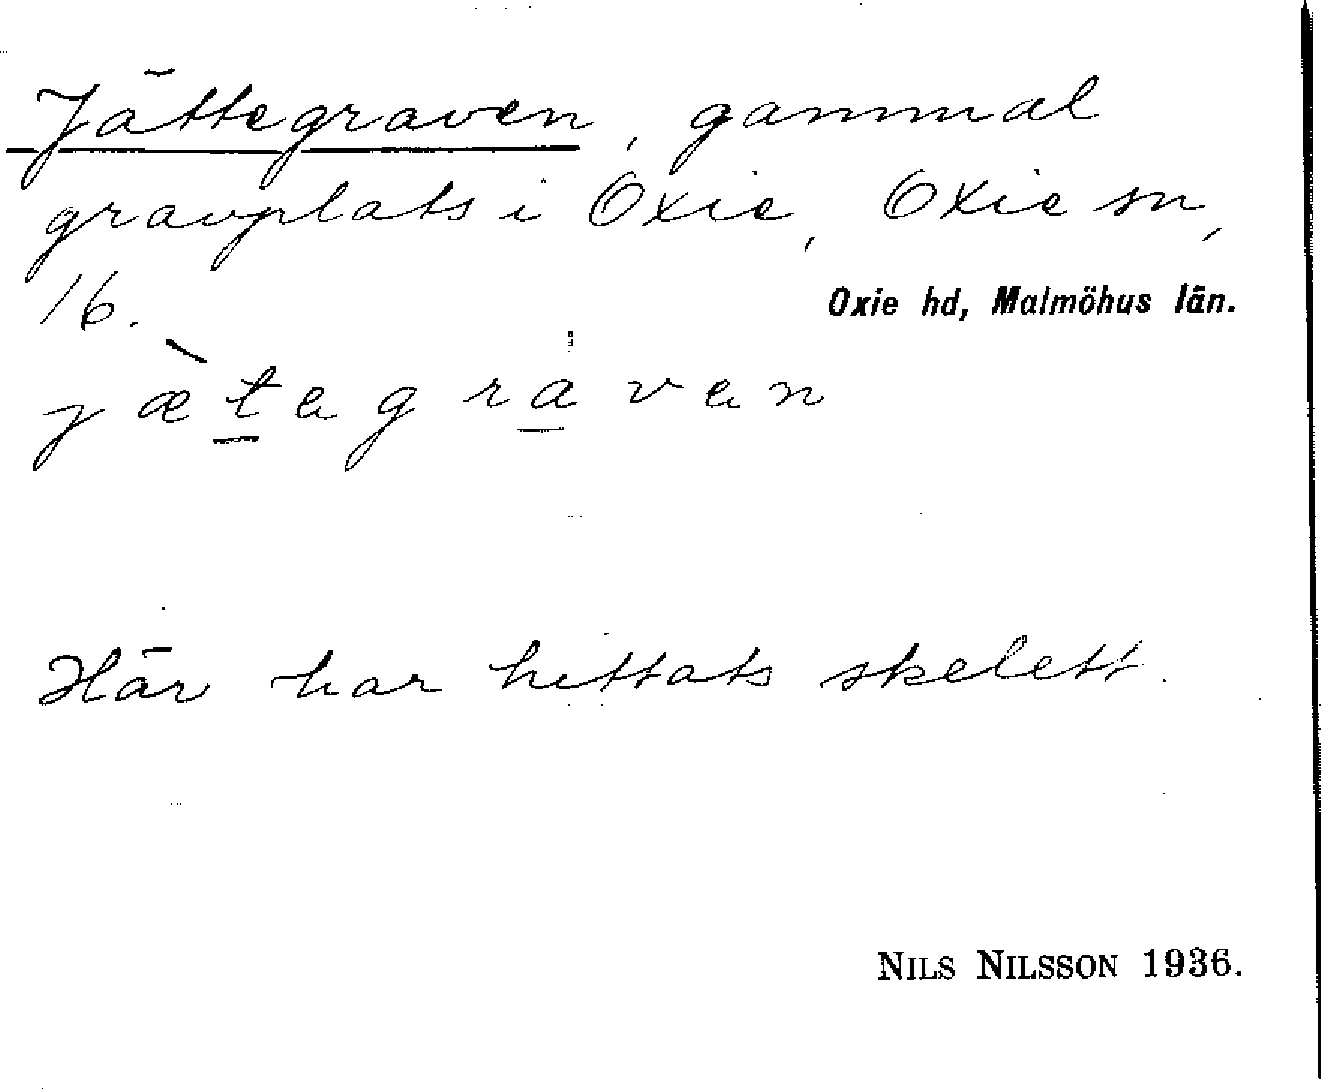 Jättegraven, gammal
gravplats i Oxie, Oxie sn,
16.
Oxie hd, Malmöhus län.
jæ̀t̲egra̲ven
Här har hittats skelett.
NILS NILSSON 1936.